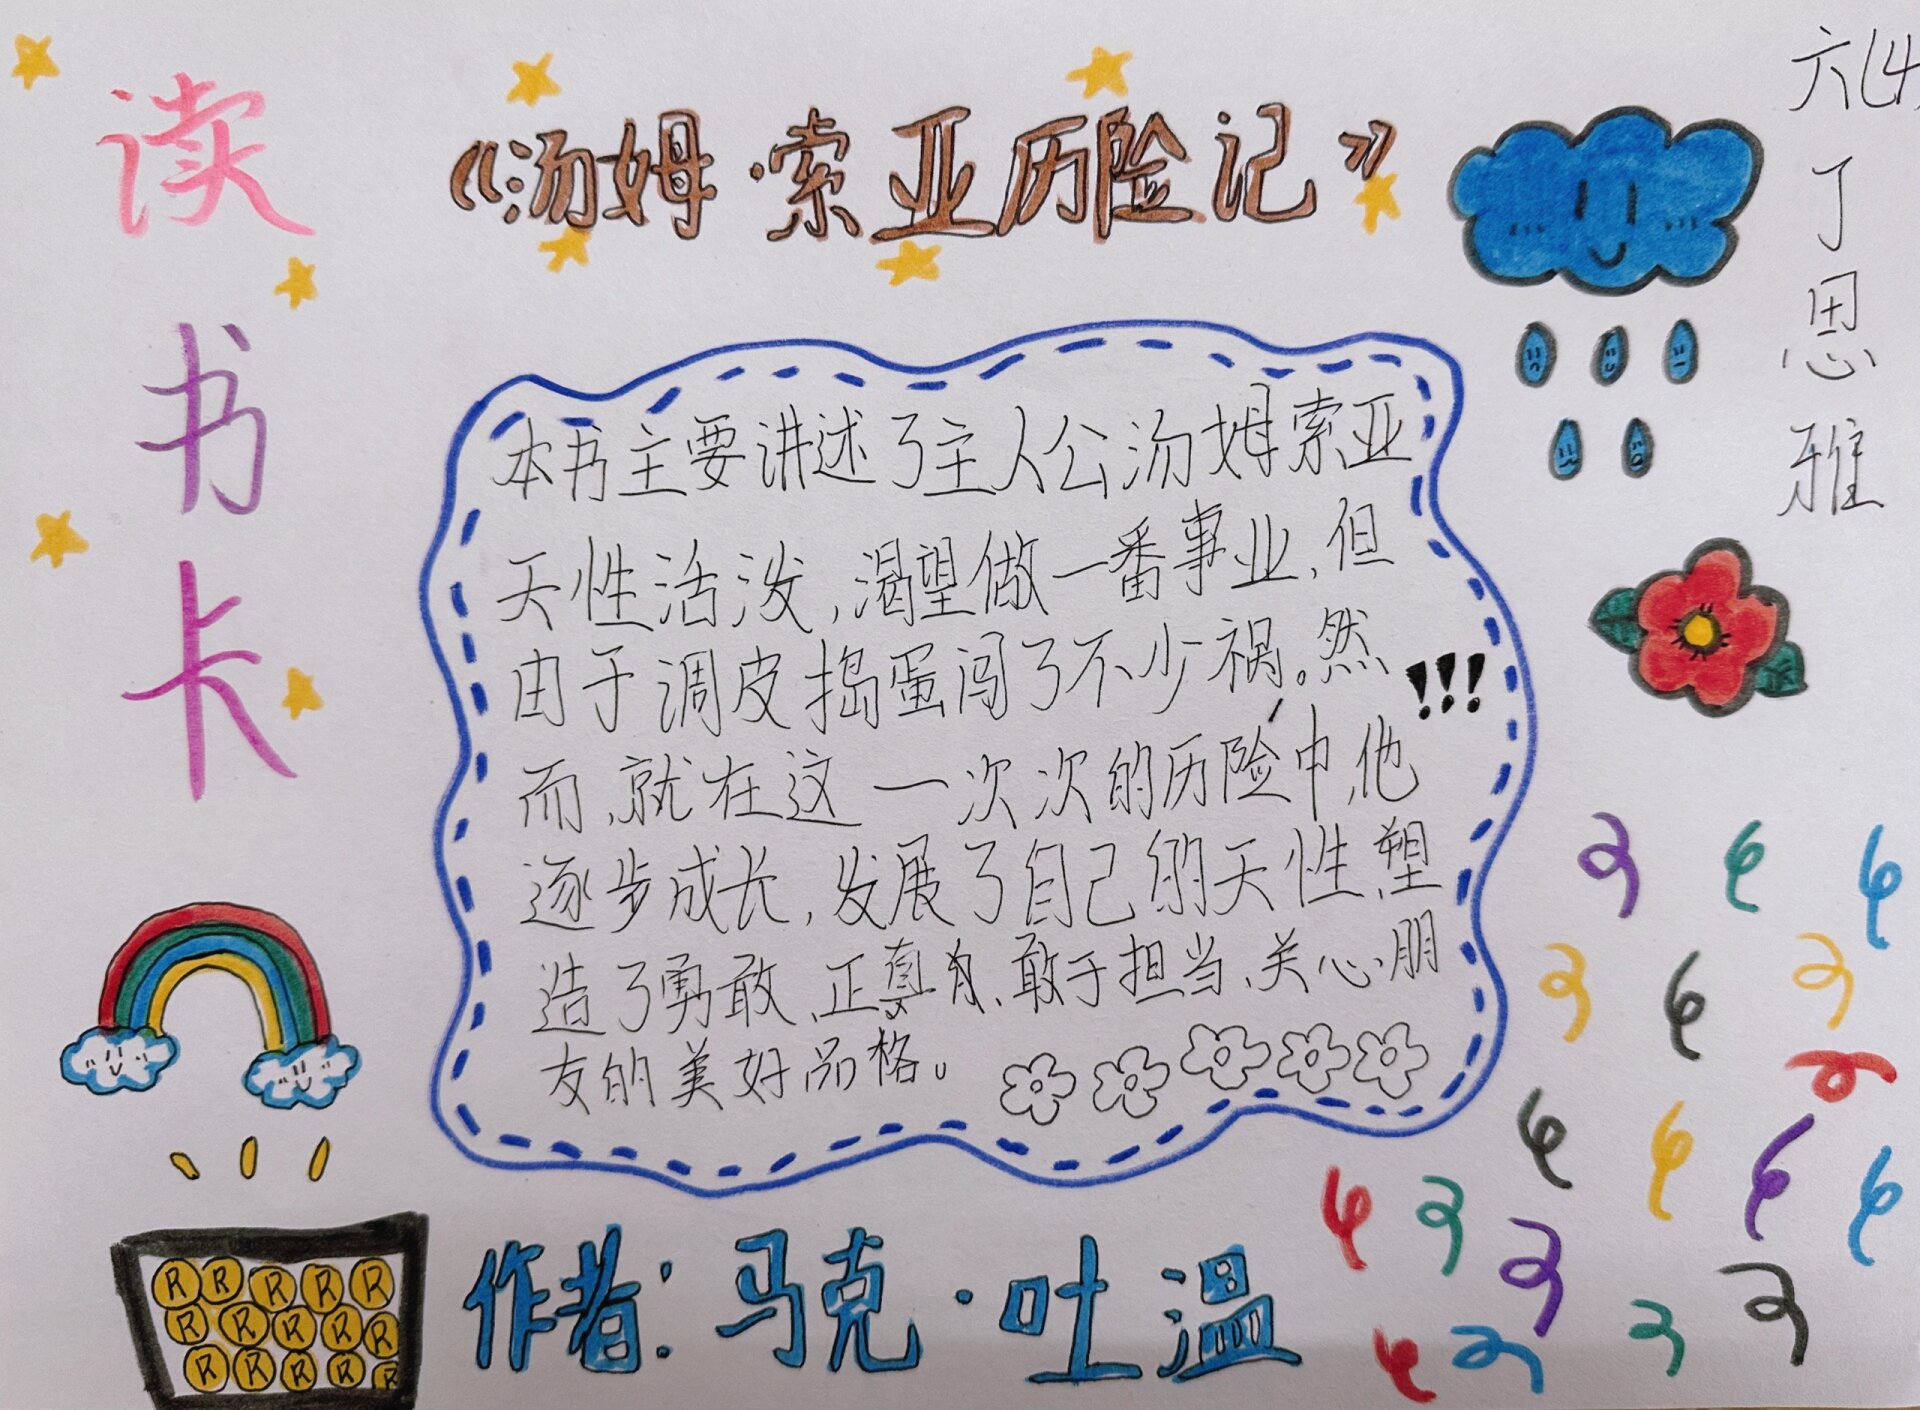 读书卡
《汤姆·索亚历险记》
六(4)
丁思雅
本书主要讲述了主人公汤姆索亚
天性活泼,渴望做一番事业,但
由于调皮捣蛋闯了不少祸。然
而,就在这一次次的历险中,他
逐步成长,发展了自己的天性,塑
造了勇敢、正真、敢于担当、关心朋
友的美好品格。
!!!
作者:马克·吐温
R R R R R
R R R R R
R R R R R